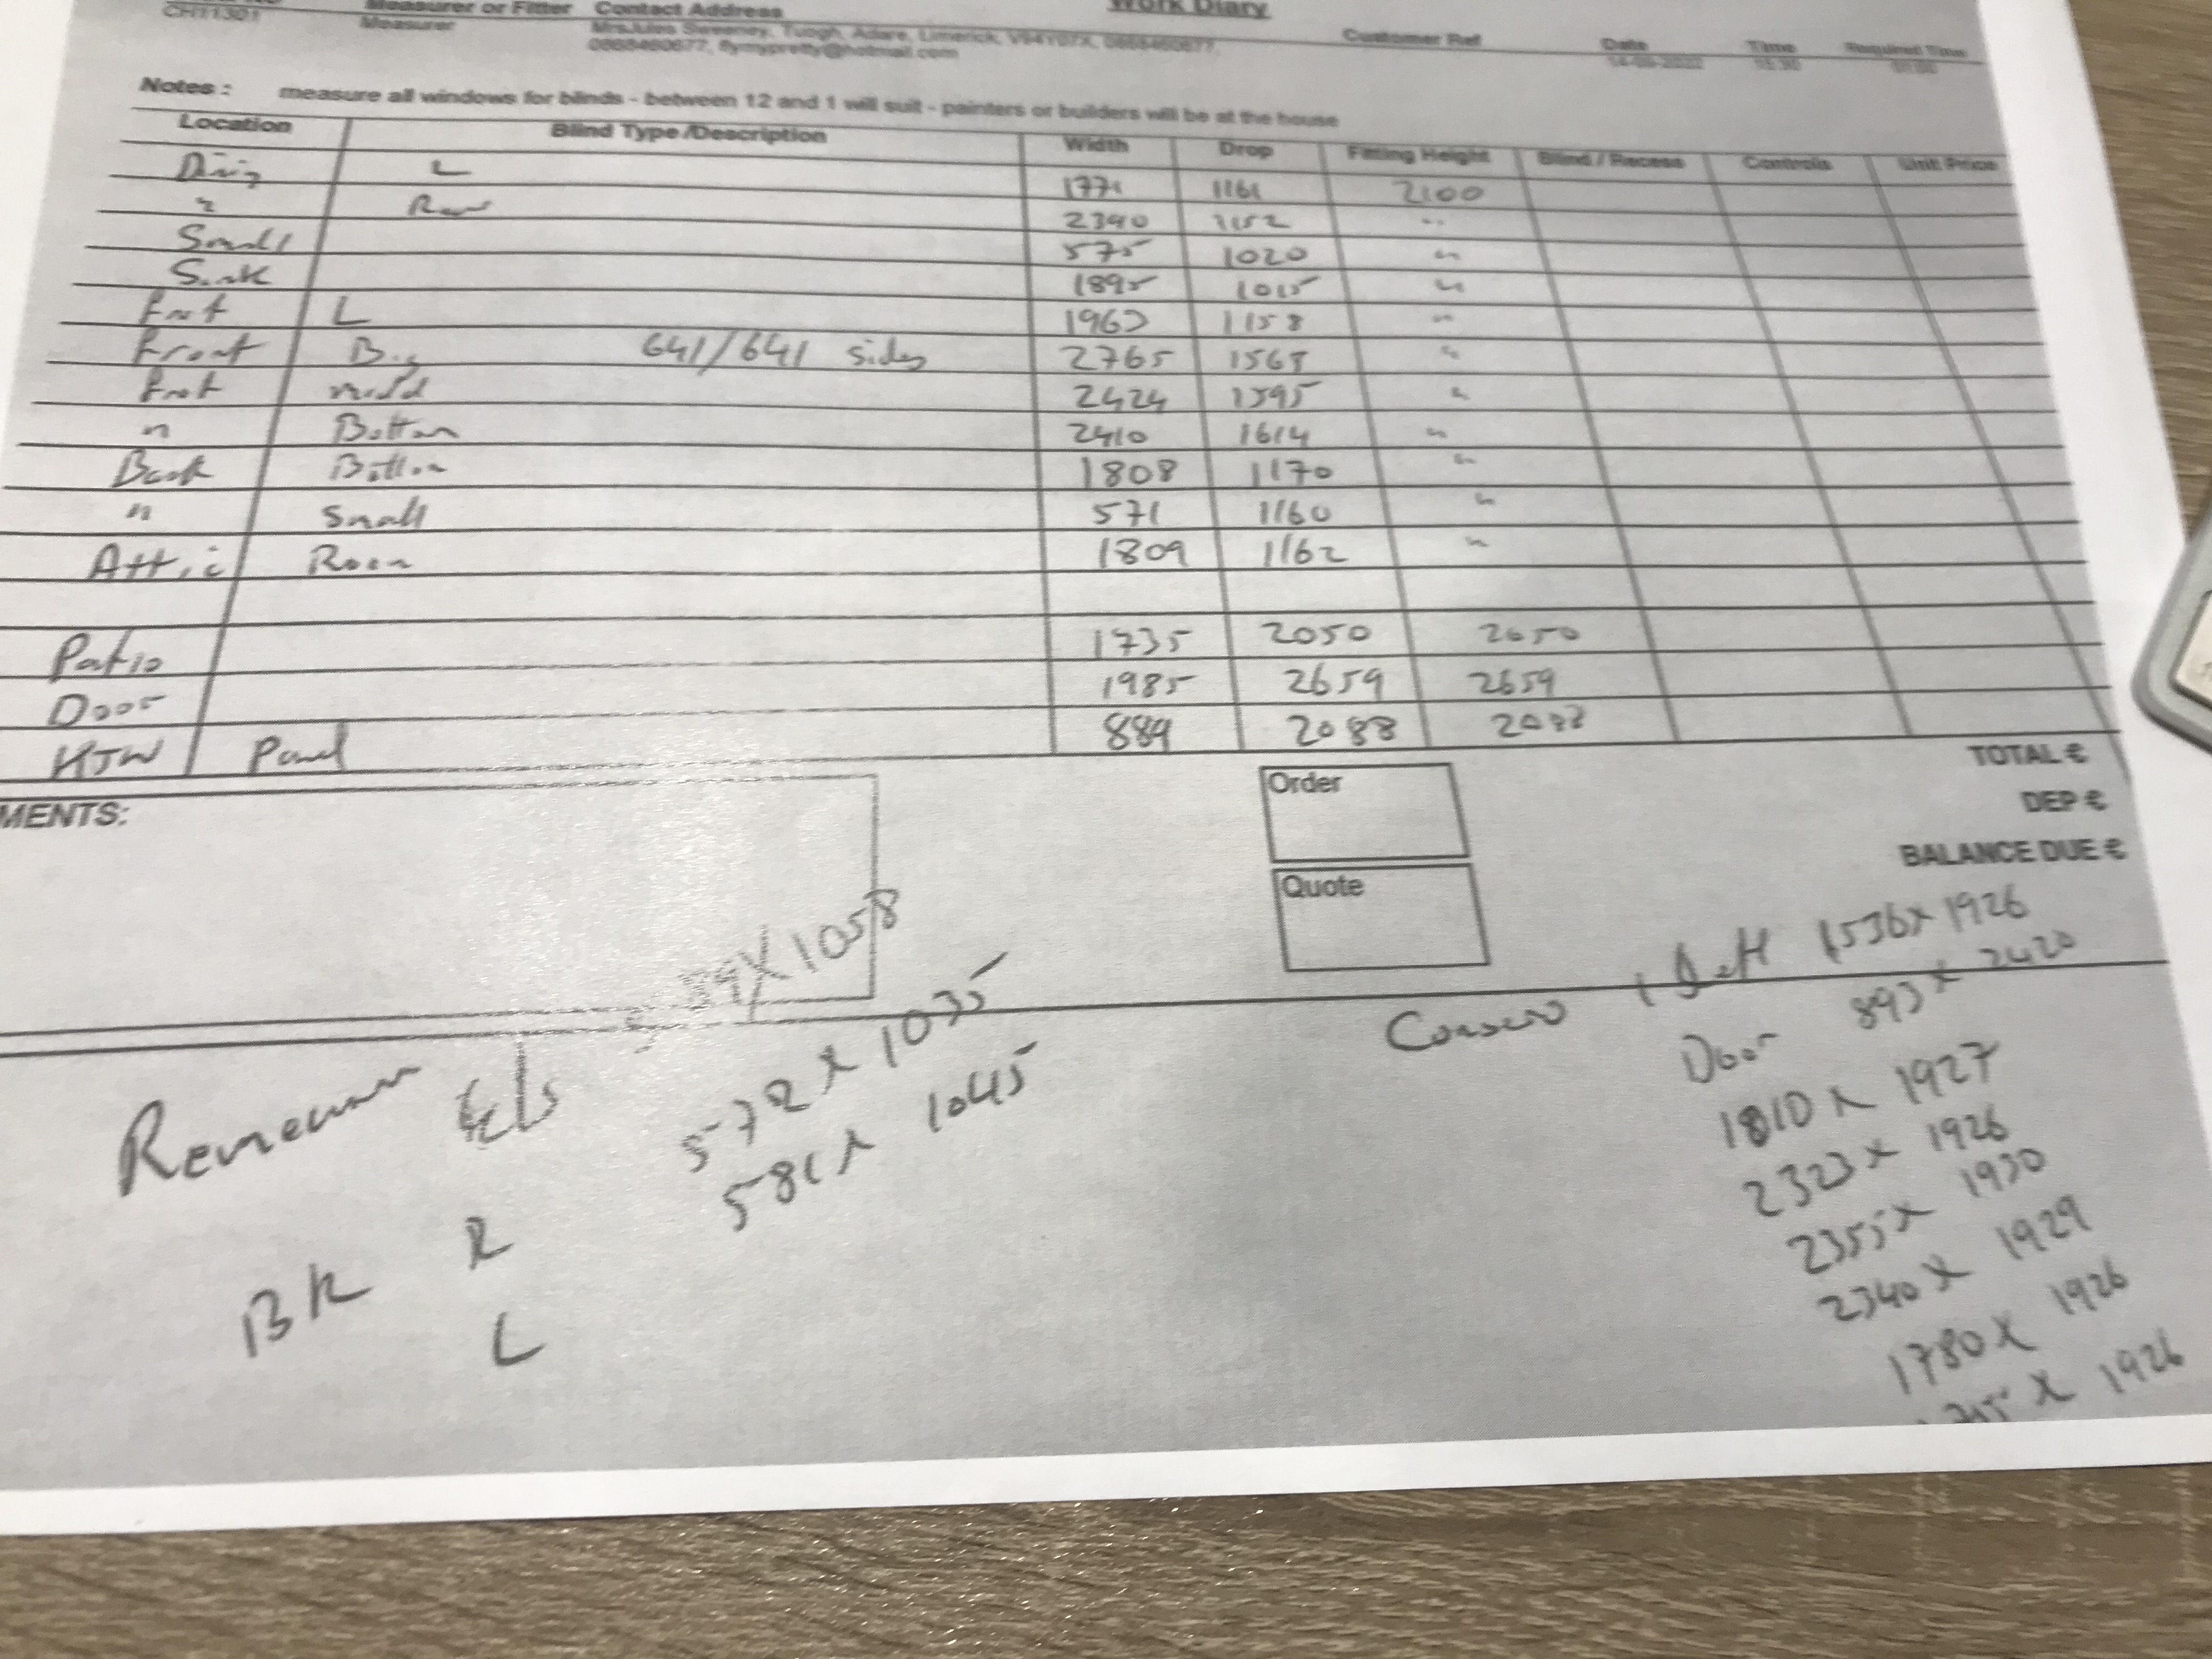 Work Diary
CH11301 Measurer or Fitter Contact Address Customer Ref Date Time Required Time
Measurer Mrs Jules Sweeney, Tuogh, Adare, Limerick,
flymypretty@hotmail.com
Notes : measure all windows for blinds - between 12 and 1 will suit - painters or builders will be at the house
Location Blind Type /Description Width Drop Fitting Height Blind / Recess Controls Unit Price
Dinig L 1771 1161 2100
" Rear 2390 1152 "
Small 575 1020 "
Sink 1895 1015 "
Frot L 1960 1158 "
Front Big 641/641 sides 2765 1565 "
Frot midd 2424 1595 "
" Bottom 2410 1614 "
Back Bottom 1808 1170 "
" Small 571 1160 "
Attic Room 1809 1162 "
Patio 1735 2050 2050
Door 1985 2659 2659
Panel 889 2088 2088
MENTS:
TOTAL €
DEP €
BALANCE DUE €
Order
Quote
X 1058
572 x 1035
581 x 1045
BK R
L
1 Left 1536 x 1926
Door 893 x 2420
1810 x 1927
2323 x 1926
2355 x 1930
2340 x 1929
1780 x 1926
x 1926